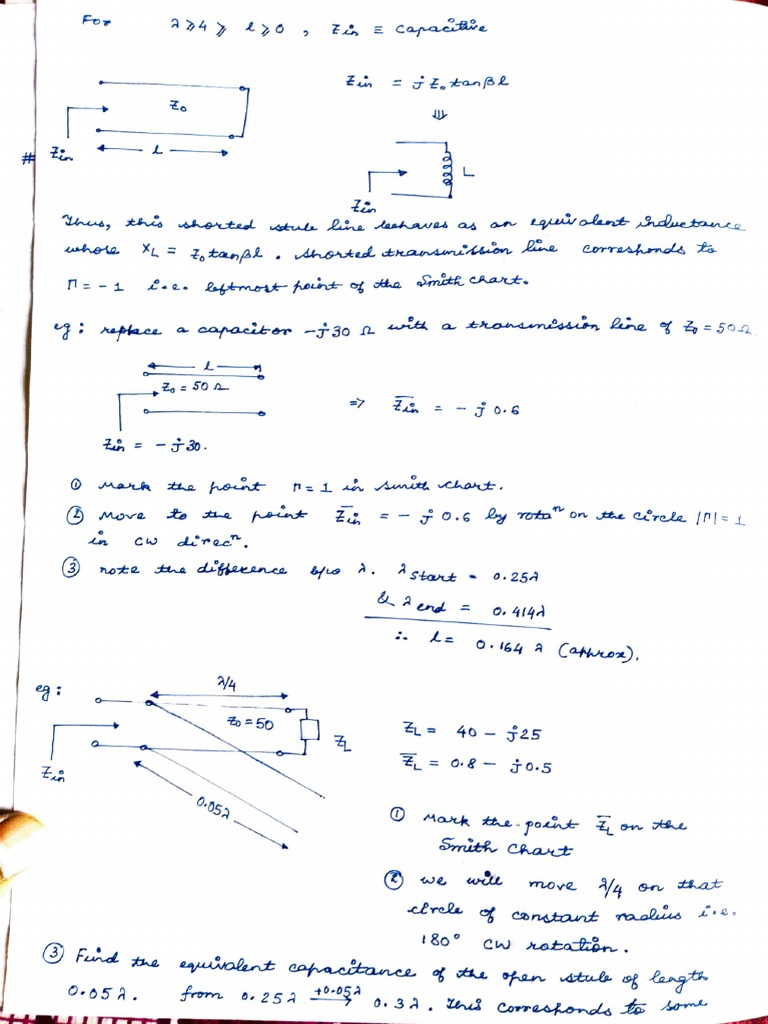 For λ/4 ≥ l ≥ 0, Zin ≡ capacitive
Zin = jZ₀tanβl
Z₀
⇓
l
# Zin
L
Zin
Thus, this shorted stub line behaves as an equivalent inductance
whose XL = Z₀tanβl. Shorted transmission line corresponds to
Γ = -1 i.e. leftmost point of the Smith chart.
eg: replace a capacitor -j30 Ω with a transmission line of Z₀ = 50Ω.
l
Z₀ = 50 Ω
⇒ Z̅in = - j 0.6
Zin = - j30.
① Mark the point Γ=1 in smith chart.
② Move to the point Z̅in = - j 0.6 by rotaⁿ on the circle |Γ|=1
in CW direcⁿ.
③ note the difference b/w λ. λstart = 0.25λ
& λend = 0.414λ
∴ l = 0.164 λ (approx).
eg:
λ/4
Z₀ = 50
ZL
ZL = 40 - j25
Z̅L = 0.8 - j0.5
Zin
0.05λ
① Mark the point Z̅L on the
Smith Chart
② we will move λ/4 on that
circle of constant radius i.e.
180° CW rotation.
③ Find the equivalent capacitance of the open stub of length
0.05λ. from 0.25λ +0.05λ→ 0.3λ. This corresponds to some